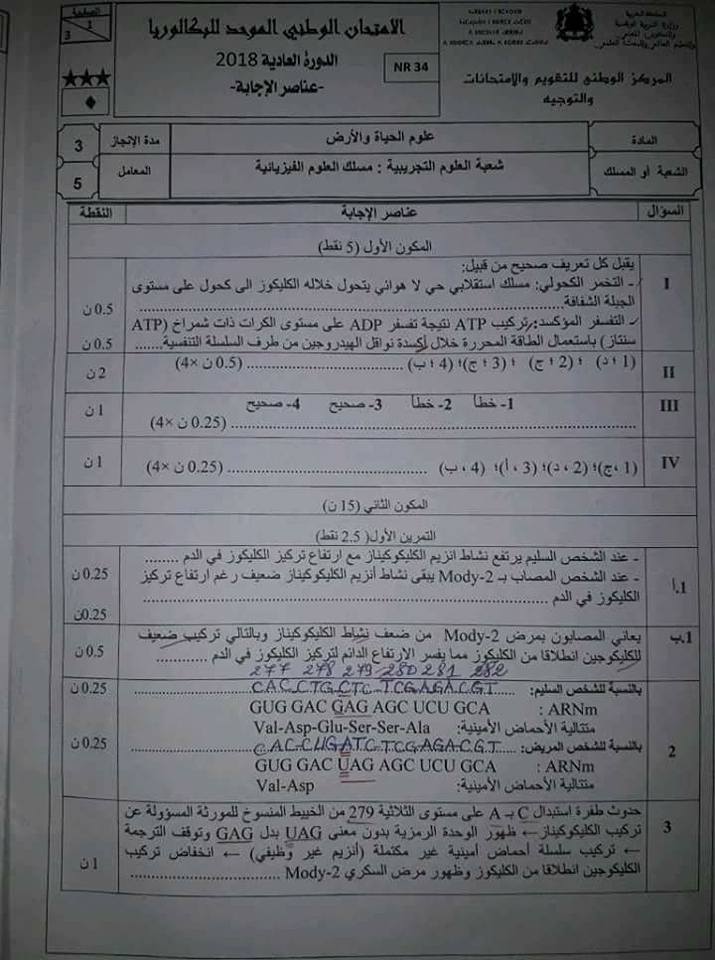 الصفحة
1
3
الامتحان الوطني الموحد للبكالوريا
الدورة العادية 2018
-عناصر الإجابة-
NR 34
المملكة المغربية
وزارة التربية الوطنية
والتكوين المهني
والتعليم العالي والبحث العلمي
المركز الوطني للتقويم والامتحانات
والتوجيه
المادة علوم الحياة والأرض مدة الإنجاز 3
الشعبة أو المسلك شعبة العلوم التجريبية : مسلك العلوم الفيزيائية المعامل 5
السؤال عناصر الإجابة النقطة
المكون الأول (5 نقط)
يقبل كل تعريف صحيح من قبيل:
I - التخمر الكحولي: مسلك استقلابي حي لا هوائي يتحول خلاله الكليكوز الى كحول على مستوى
الجبلة الشفافة 0.5 ن
- التفسفر المؤكسد: تركيب ATP نتيجة تفسفر ADP على مستوى الكرات ذات شمراخ (ATP
سنتاز) باستعمال الطاقة المحررة خلال أكسدة نواقل الهيدروجين من طرف السلسلة التنفسية 0.5 ن
II (1 ؛ د) ؛ (2 ؛ ج) ؛ (3 ؛ ج)؛ (4 ؛ ب) (0.5 ن ×4) 2 ن
III 1- خطأ 2- خطأ 3- صحيح 4- صحيح
(0.25 ن ×4) 1 ن
IV (1 ، ج)؛ (2 ، د)؛ (3 ، أ)؛ (4 ، ب) (0.25 ن ×4) 1 ن
المكون الثاني (15 ن)
التمرين الأول( 2.5 نقط)
1.أ - عند الشخص السليم يرتفع نشاط انزيم الكليكوكيناز مع ارتفاع تركيز الكليكوز في الدم 0.25 ن
- عند الشخص المصاب بـ Mody-2 يبقى نشاط أنزيم الكليكوكيناز ضعيف رغم ارتفاع تركيز
الكليكوز في الدم 0.25ن
1.ب يعاني المصابون بمرض Mody-2 من ضعف نشاط الكليكوكيناز وبالتالي تركيب ضعيف
للكليكوجين انطلاقا من الكليكوز مما يفسر الارتفاع الدائم لتركيز الكليكوز في الدم 0.5 ن
277 278 279 280 281 282
بالنسبة للشخص السليم: CAC CTG CTC TCG AGA CGT 0.25 ن
ARNm : GUG GAC GAG AGC UCU GCA
متتالية الأحماض الأمينية: Val-Asp-Glu-Ser-Ser-Ala
2 بالنسبة للشخص المريض: CAC CUG ATC TCG AGA CGT 0.25 ن
ARNm : GUG GAC UAG AGC UCU GCA
متتالية الأحماض الأمينية: Val-Asp
3 حدوث طفرة استبدال C بـ A على مستوى الثلاثية 279 من الخييط المنسوخ للمورثة المسؤولة عن
تركيب الكليكوكيناز← ظهور الوحدة الرمزية بدون معنى UAG بدل GAG وتوقف الترجمة
← تركيب سلسلة أحماض أمينية غير مكتملة (أنزيم غير وظيفي) ← انخفاض تركيب
الكليكوجين انطلاقا من الكليكوز وظهور مرض السكري Mody-2 1 ن